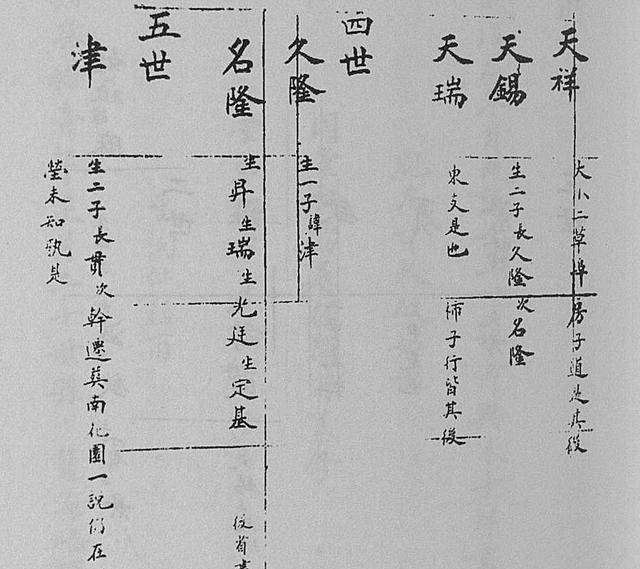 天祥 大小二草埠房子道是其後
天錫 生二子長久隆次名隆
天瑞 東支是也柿子行皆其後
四世
久隆 生一子諱津
名隆 生昇生瑞生光廷生定基
後省
五世
津 生二子長貫次幹遷葬南化園一説仍在
塋未知孰是